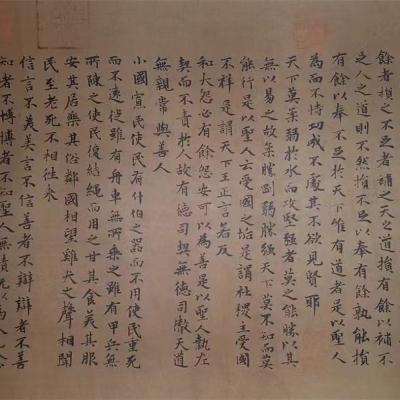 餘者損之不足者補之天之道損有餘以補不
足人之道則不然損不足以奉有餘孰能損
有餘以奉不足於天下唯有道者是以聖人
為而不恃功成不處其不欲見賢耶
天下莫柔弱於水而攻堅強者莫之能勝以其
無以易之故柔勝剛弱勝強天下莫不知而莫
能行是以聖人云受國之垢是謂社稷主受國
不祥是謂天下王正言若反
和大怨必有餘怨安可以為善是以聖人執左
契而不責於人故有德司契無德司徹天道
無親常與善人
小國寡民使民有什伯之器而不用使民重死
而不遠徙雖有舟車無所乘之雖有甲兵無
所陳之使民復結繩而用之甘其食美其服
安其居樂其俗鄰國相望雞犬之聲相聞
民至老死不相往來
信言不美美言不信善者不辯辯者不善
知者不博博者不知聖人無積既以為人己愈